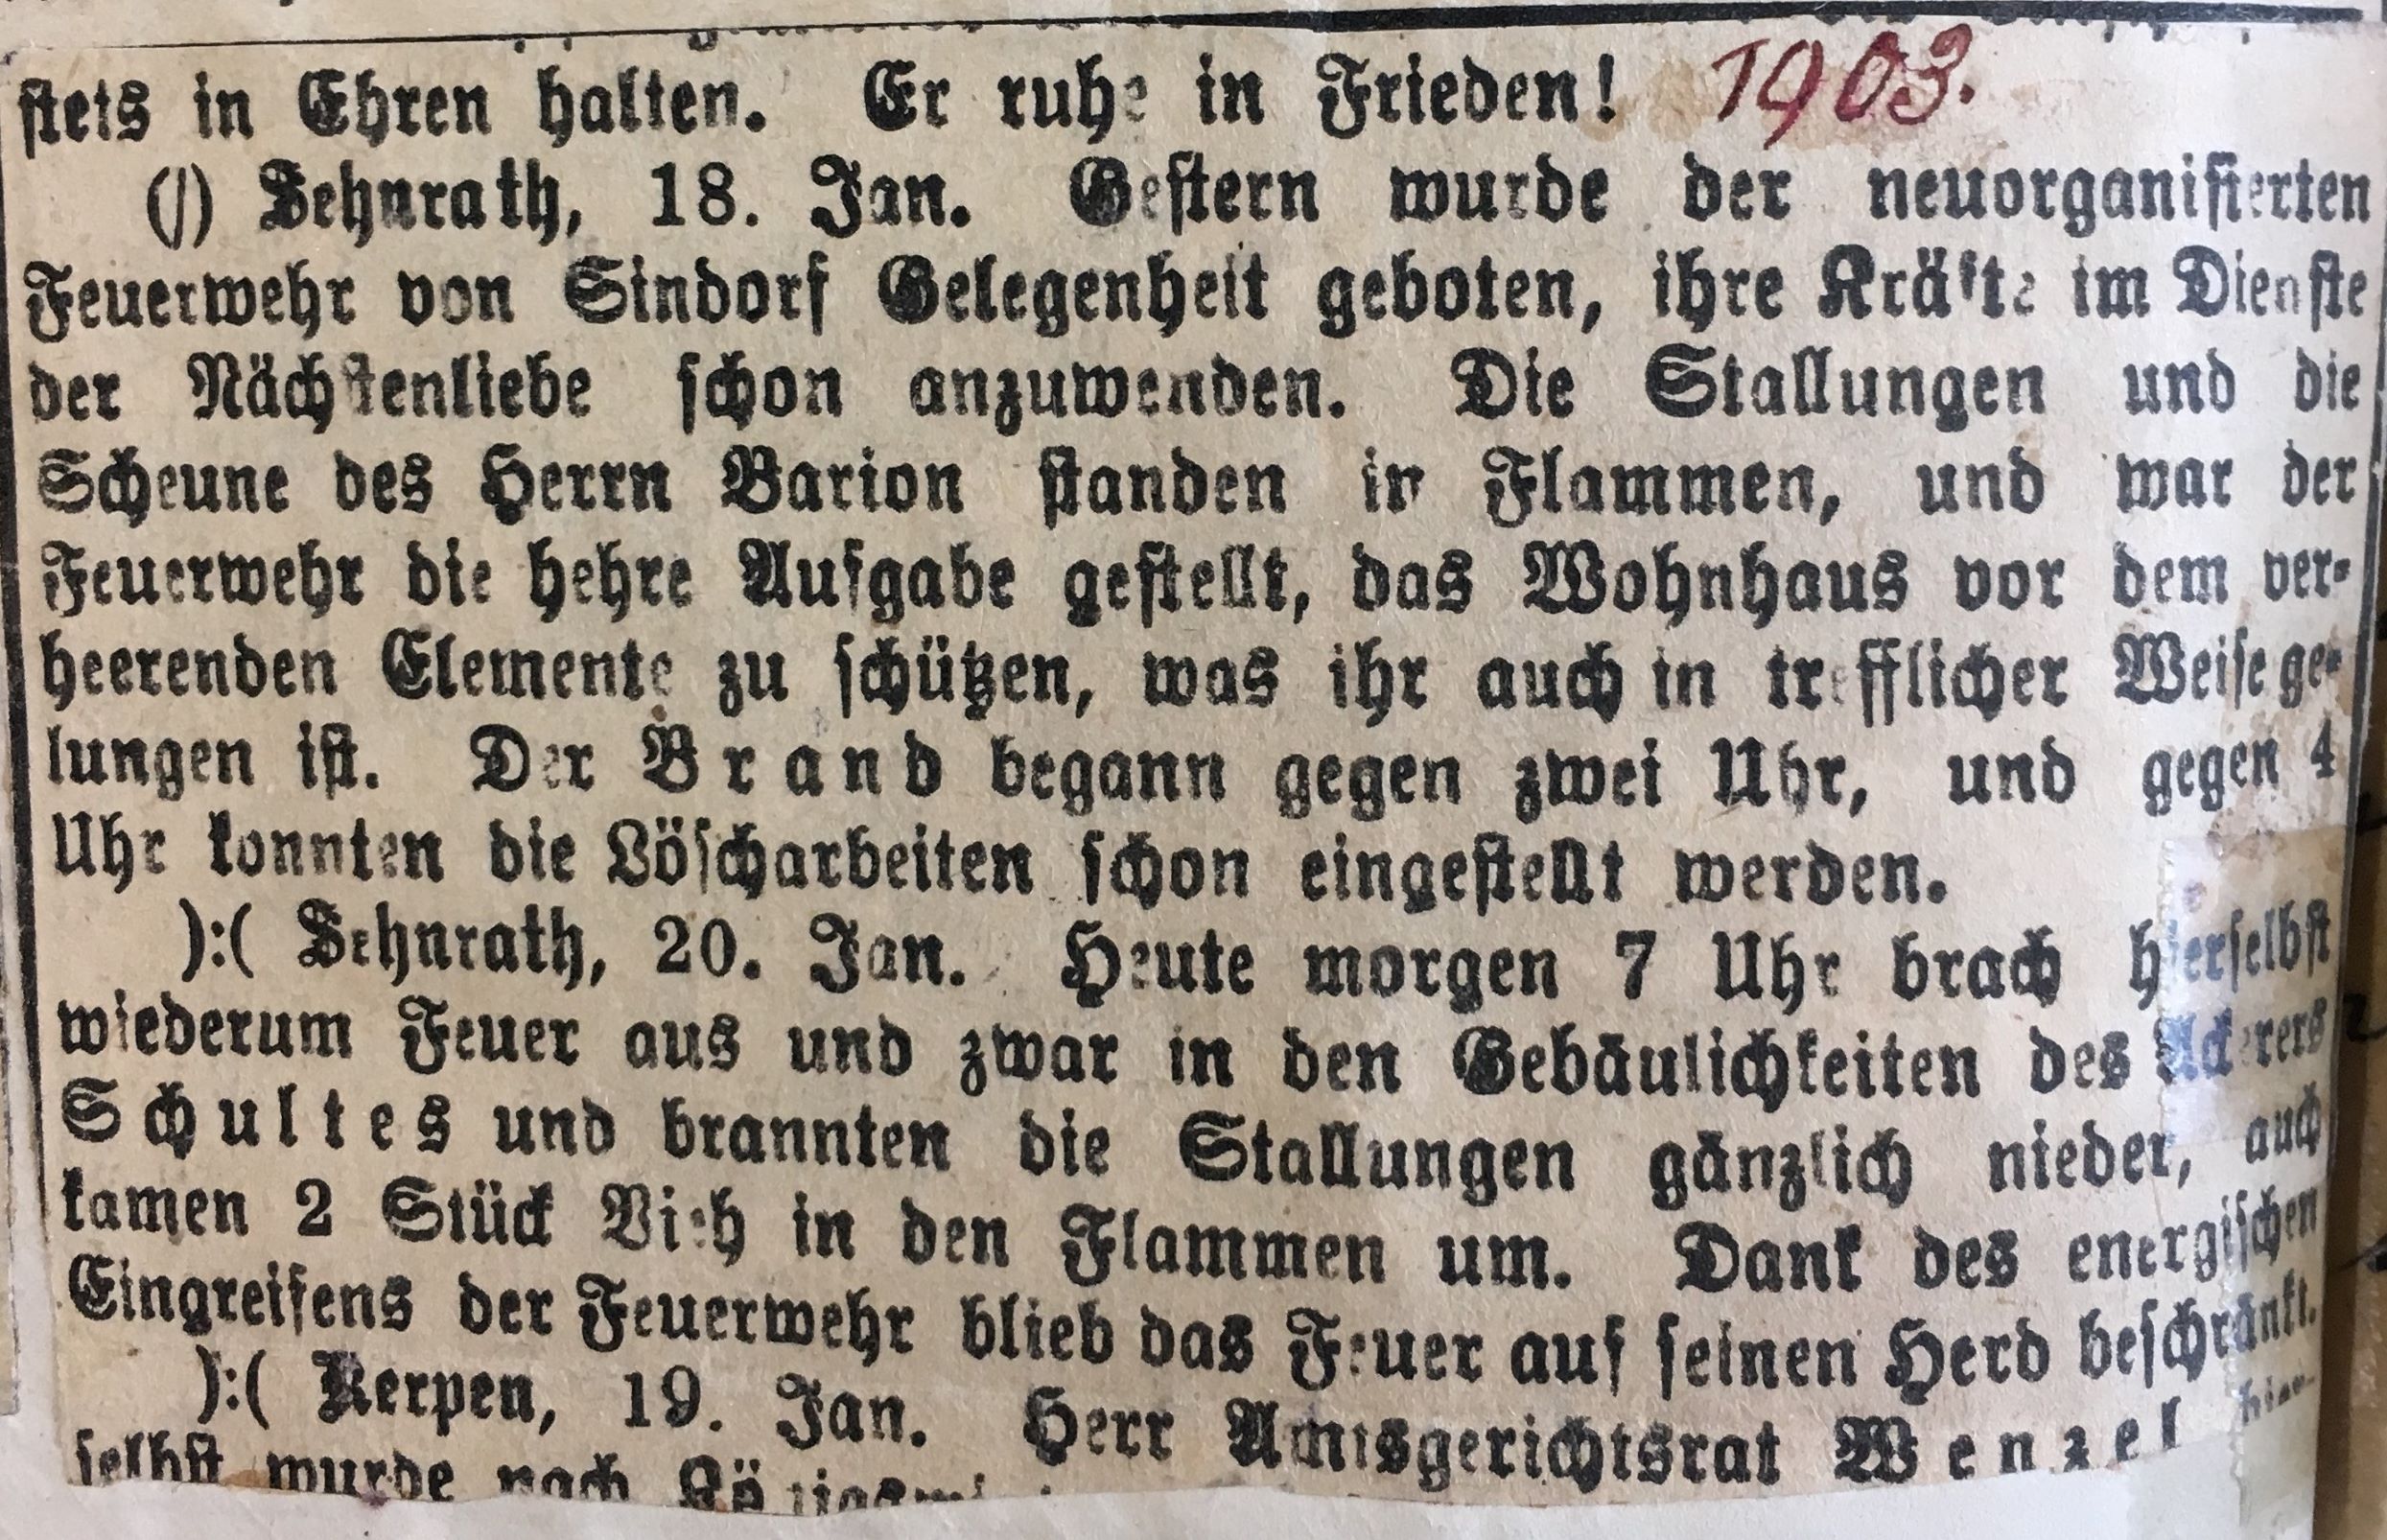 stets in Ehren halten. Er ruhe in Frieden! 1903.
(/) Sehnrath, 18. Jan. Gestern wurde der neuorganisierten
Feuerwehr von Sindorf Gelegenheit geboten, ihre Kräfte im Dienste
der Nächstenliebe schon anzuwenden. Die Stallungen und die
Scheune des Herrn Barion standen in Flammen, und war der
Feuerwehr die hehre Aufgabe gestellt, das Wohnhaus vor dem ver-
heerenden Elemente zu schützen, was ihr auch in trefflicher Weise ge-
lungen ist. Der Brand begann gegen zwei Uhr, und gegen 4
Uhr konnten die Löscharbeiten schon eingestellt werden.
):( Sehnrath, 20. Jan. Heute morgen 7 Uhr brach hierselbst
wiederum Feuer aus und zwar in den Gebäulichkeiten des Ackerers
Schultes und brannten die Stallungen gänzlich nieder, auch
kamen 2 Stück Vieh in den Flammen um. Dank des energischen
Eingreifens der Feuerwehr blieb das Feuer auf seinen Herd beschränkt.
):( Kerpen, 19. Jan. Herr Amtsgerichtsrat Wenzel hier-
selbst wurde nach